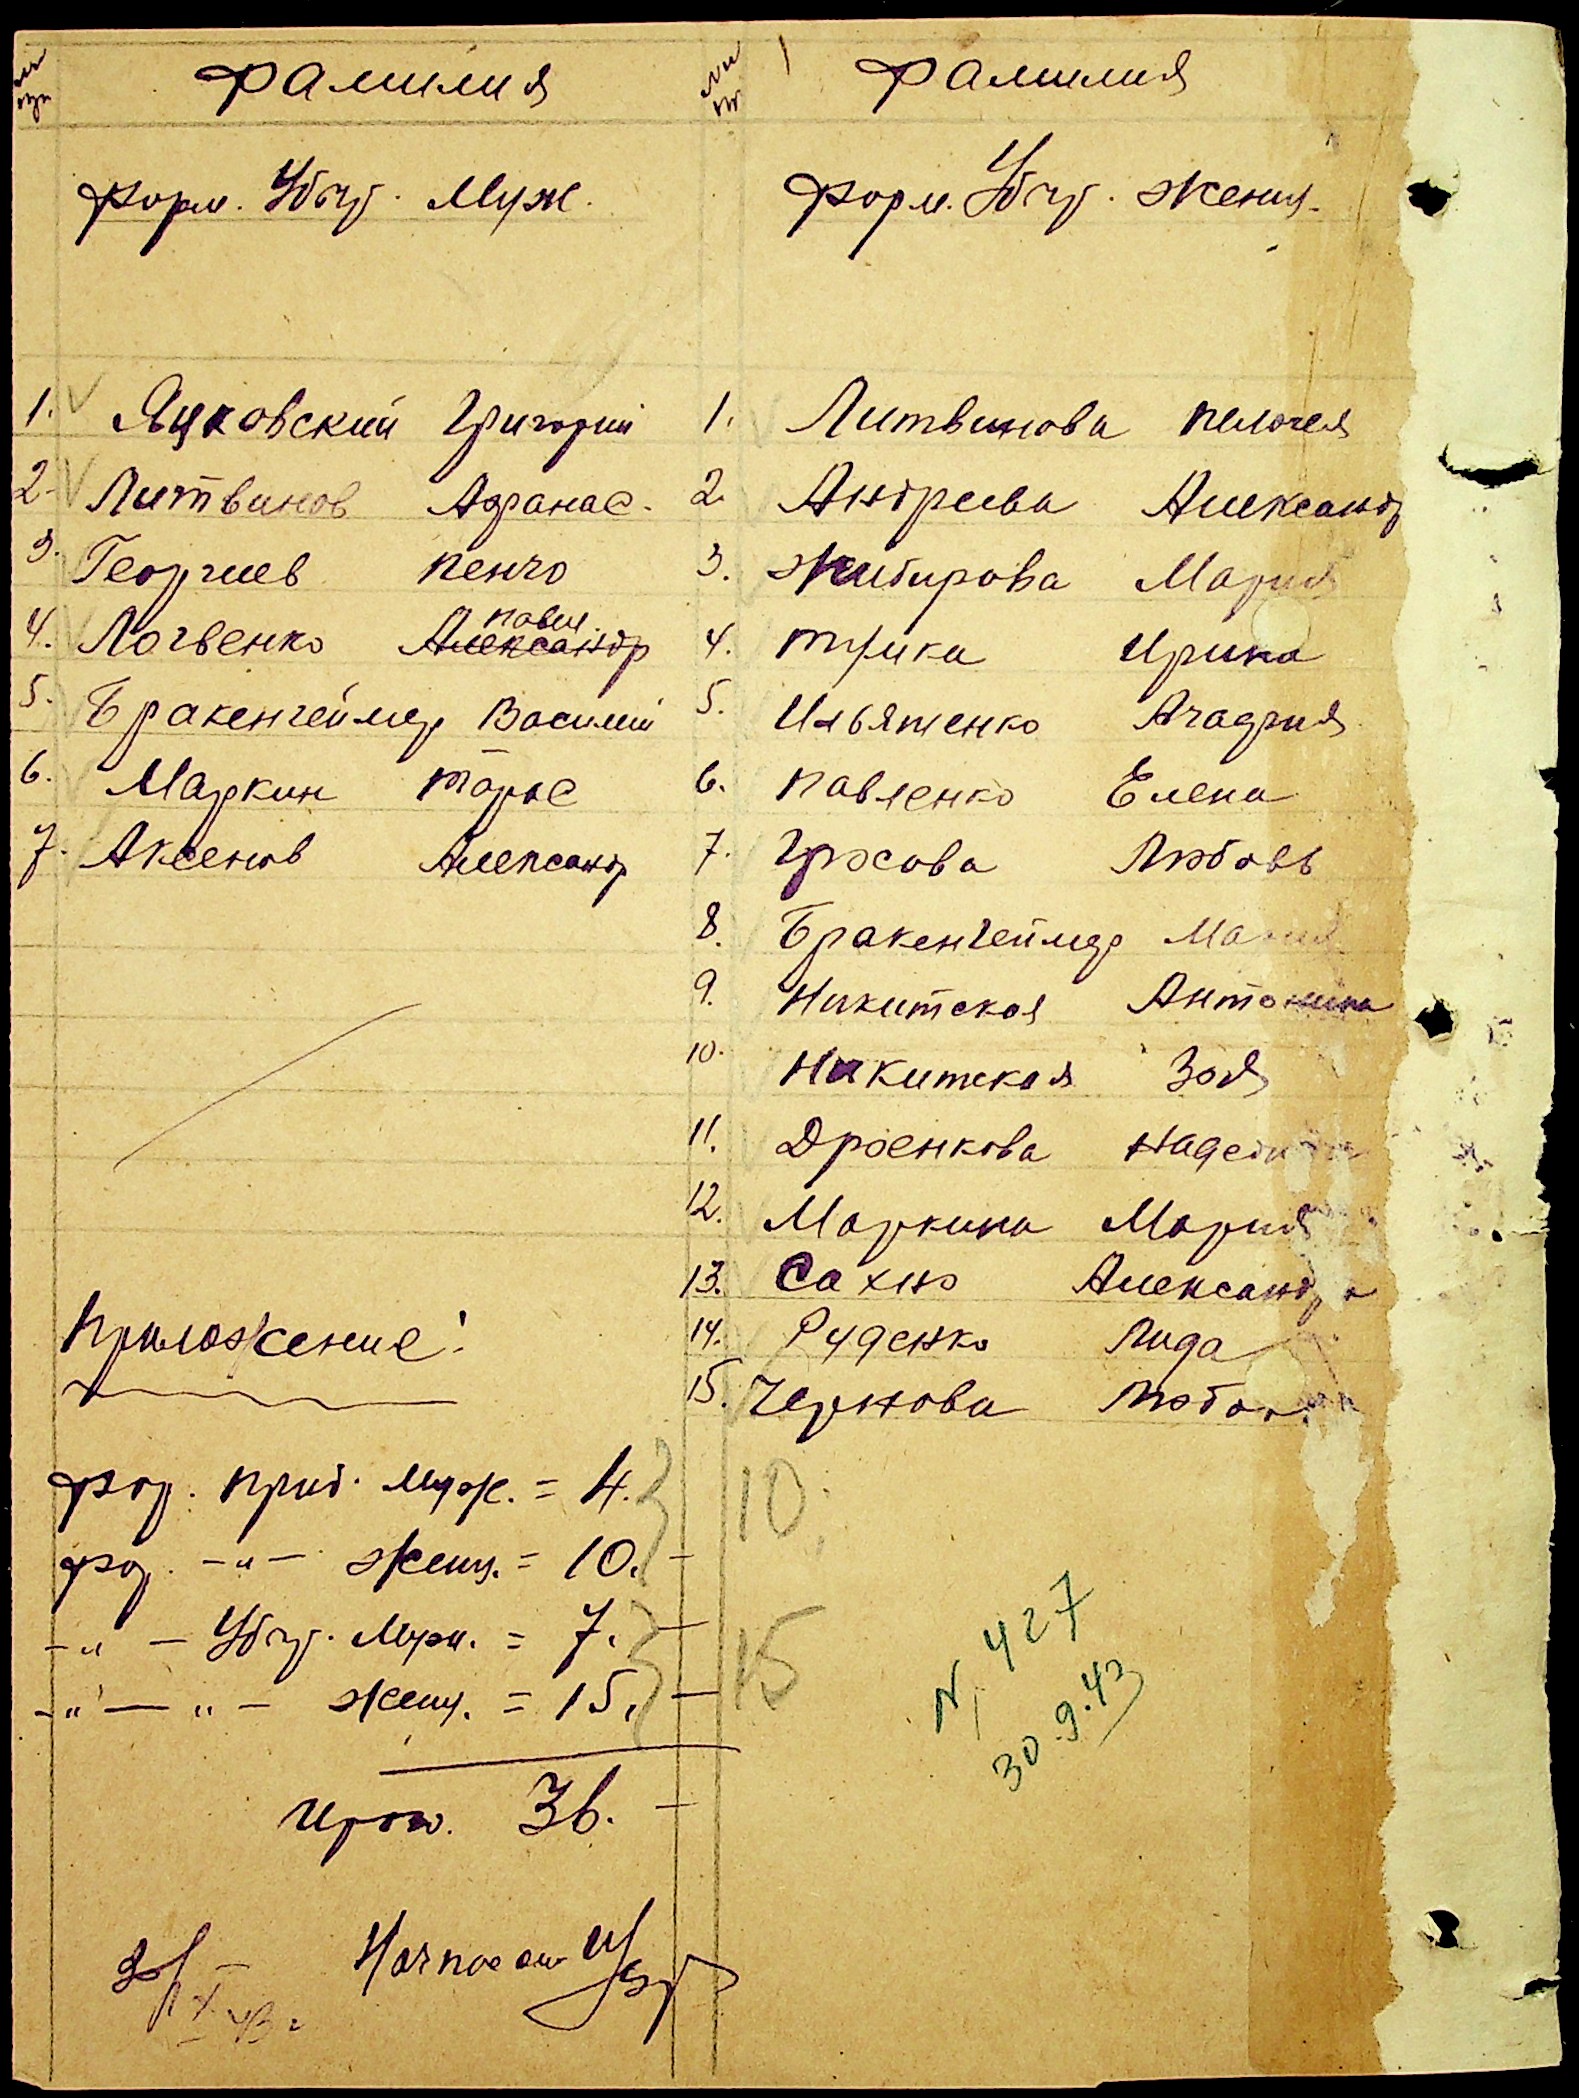 Фамилия
форм. Убыт. Муж.
1. Яцковский Григорий
2. Литвинов Афанас.
3. Георгиев Пенчо
4. Логвенко Александр Павел
5. Бракенгеймер Василий
6. Маркин Тарас
7. Аксенов Александр
Приложение:
фор. приб. муж. = 4.
фор. -"- женщ. = 10.
-"- Убыт. Муж. = 7.
-"- -"- женщ. = 15.
Итого. 36.
Фамилия
форм. Убыт. женщ.
1. Литвинова Пелагея
2. Андреева Александр
3. Жибирова Мария
4. Ирина
5. Ильяшенко Агафия
6. Павленко Елена
7. Любовь
8. Бракенгеймер Мария
9. Никитская Антонина
10. Никитская Зоя
11. Дроенкова Надежда
12. Маркина Мария
13. Сахно Александра
14. Руденко Лида
15. Чернова Любовь
10
15
N 427
30.9.43